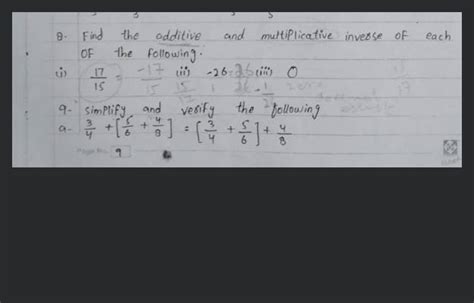 8- Find the odditive and multiplicative invese of each
OF the following.
(i) 17/15 = -17/15 (ii) -26 26 (iii) 0
9- simplify and verify the following
a- 3/4 + [5/6 + 4/8] = [3/4 + 5/6] + 4/8
9